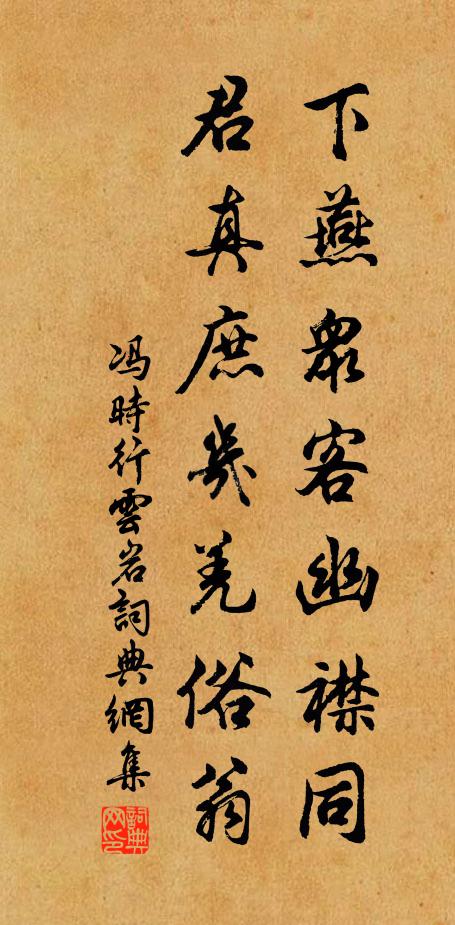 下燕众客幽襟同
君真庶几羌俗翁
冯時行雲岩詞典網集
詞典网印